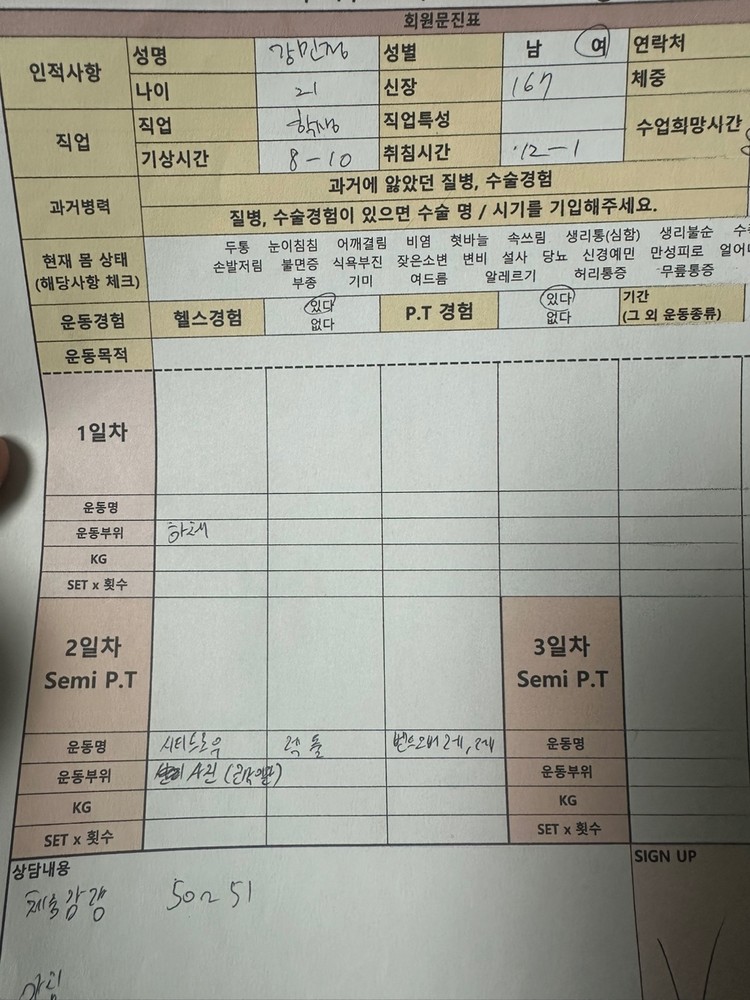 회원문진표
인적사항 성명 강민정 성별 남 여 연락처
나이 21 신장 167 체중
직업 직업 학생 직업특성 수업희망시간
기상시간 8-10 취침시간 12-1
과거병력 과거에 앓았던 질병, 수술경험
질병, 수술경험이 있으면 수술 명 / 시기를 기입해주세요.
현재 몸 상태 (해당사항 체크)
두통 눈이침침 어깨결림 비염 혓바늘 속쓰림 생리통(심함) 생리불순
손발저림 불면증 식욕부진 잦은소변 변비 설사 당뇨 신경예민 만성피로
부종 기미 여드름 알레르기 허리통증 무릎통증
운동경험 헬스경험 있다 없다 P.T 경험 있다 없다 기간 (그 외 운동종류)
운동목적
1일차
운동명
운동부위 하체
KG
SET x 횟수
2일차 Semi P.T 3일차 Semi P.T
운동명 시티드로우 렉풀 벤트오버 운동명
운동부위 운동부위
KG KG
SET x 횟수 SET x 횟수
상담내용 SIGN UP
체중감량 50~51